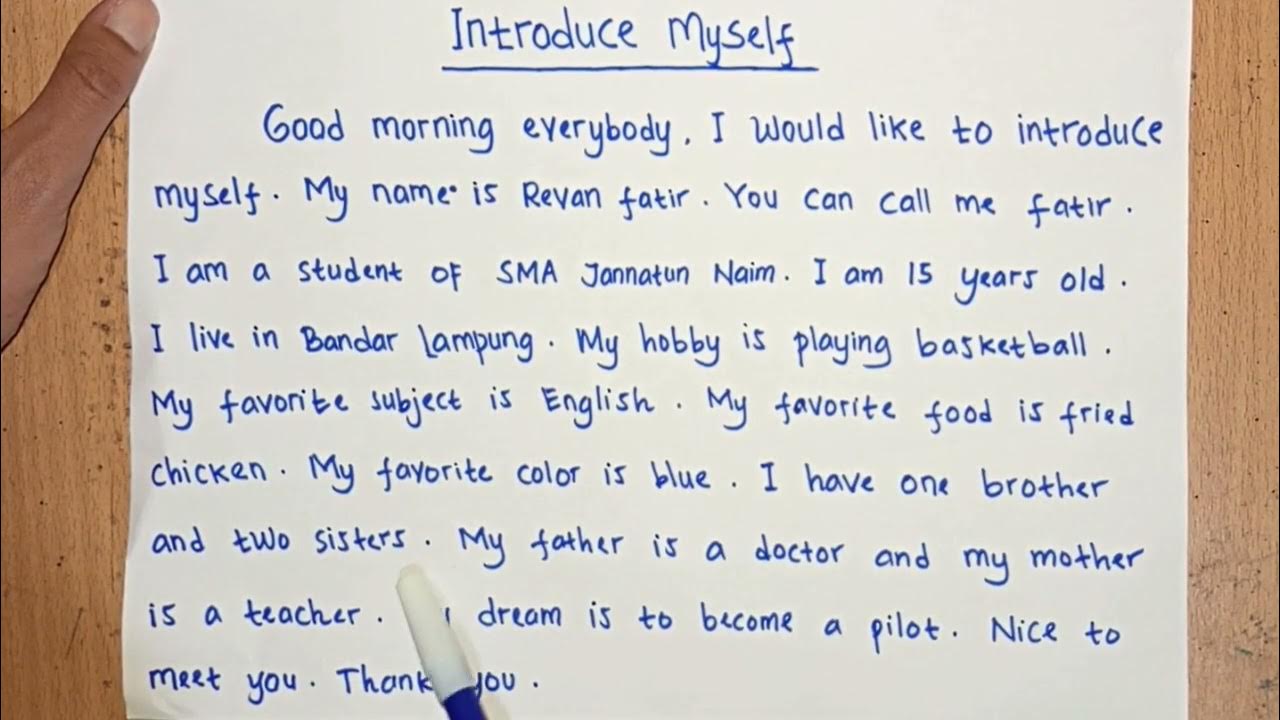 Introduce Myself
Good morning everybody. I would like to introduce
myself. My name is Revan fatir. You can call me fatir.
I am a student of SMA Jannatun Naim. I am 15 years old.
I live in Bandar Lampung. My hobby is playing basketball.
My favorite subject is English. My favorite food is fried
chicken. My favorite color is blue. I have one brother
and two sisters. My father is a doctor and my mother
is a teacher. dream is to become a pilot. Nice to
meet you. Thank you.